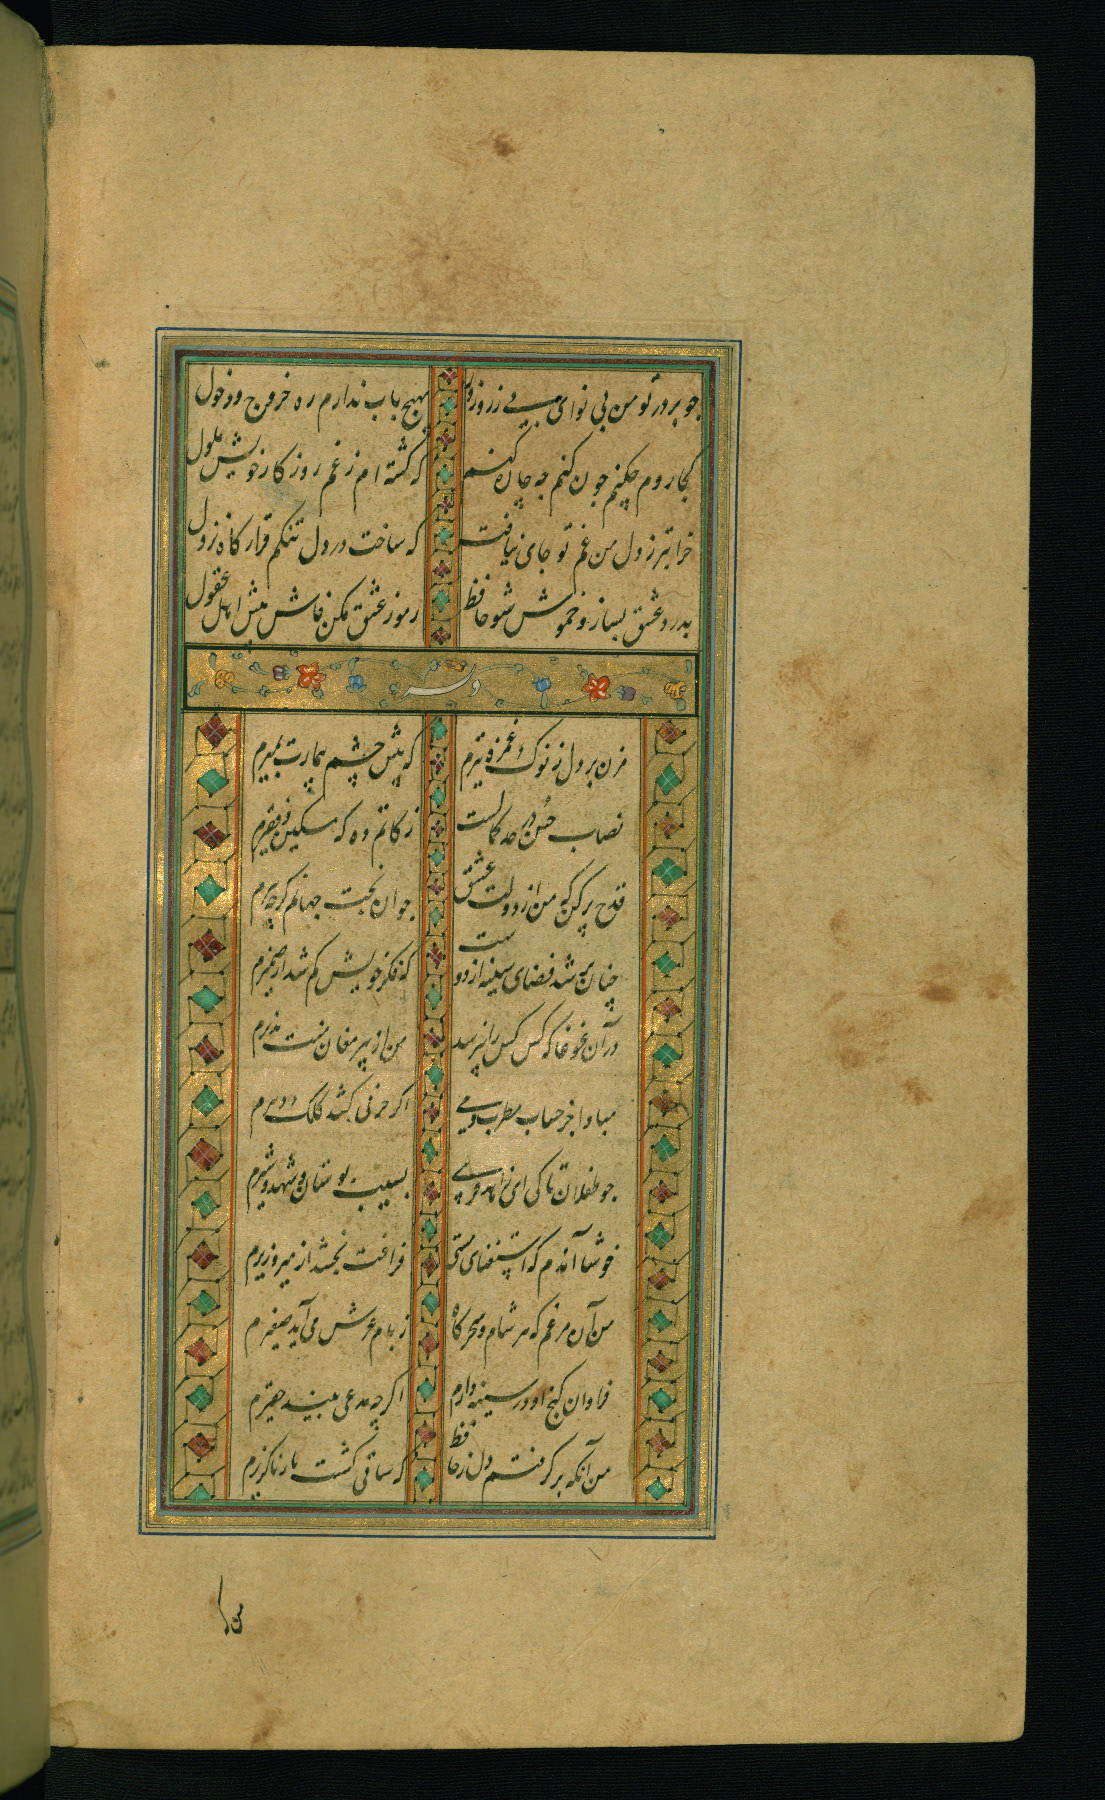 چو بر در تو من بی نوای بی زر و زور
بهیچ باب ندارم ره خروج و دخول
کجا روم چکنم چون کنم چه چاره کنم
که گشته ام ز غم روزکار خویش ملول
خرابتر ز دل من غم تو جای نیافت
که ساخت در دل تنکم قرار کاه نزول
بدرد عشق بساز و خموش شو حافظ
رموز عشق مکن فاش پیش اهل عقول
وله
مزن بر دل ز نوک غمزه تیرم
که پیش چشم بیمارت بمیرم
نصاب حسن در حد کمالست
زکاتم ده که مسکین و فقیرم
قدح پر کن که من از دولت عشق
جوان بخت جهانم کرچه پیرم
چنان پر شد فضای سینه از دوست
که فکر خویش کم شد از ضمیرم
در آن غوغا که کس کس را نپرسد
من از پیر مغان منت پذیرم
مبادا جز حساب مطرب و می
اکر حرفی کشد کلک دبیرم
چو طفلان تا کی ای زاهد فریبی
بسیب بوستان و شهد و شیرم
خوشا آندم که استغنای مستی
فراغت بخشد از میر و وزیرم
من آن مرغم که هر شام و سحرکاه
ز بام عرش می آید صفیرم
فراوان کنج او در سینه دارم
اکرچه مدعی بیند حقیرم
من آنکه بر کرفتم دل ز حافظ
که ساقی کشت یار ناکزیرم